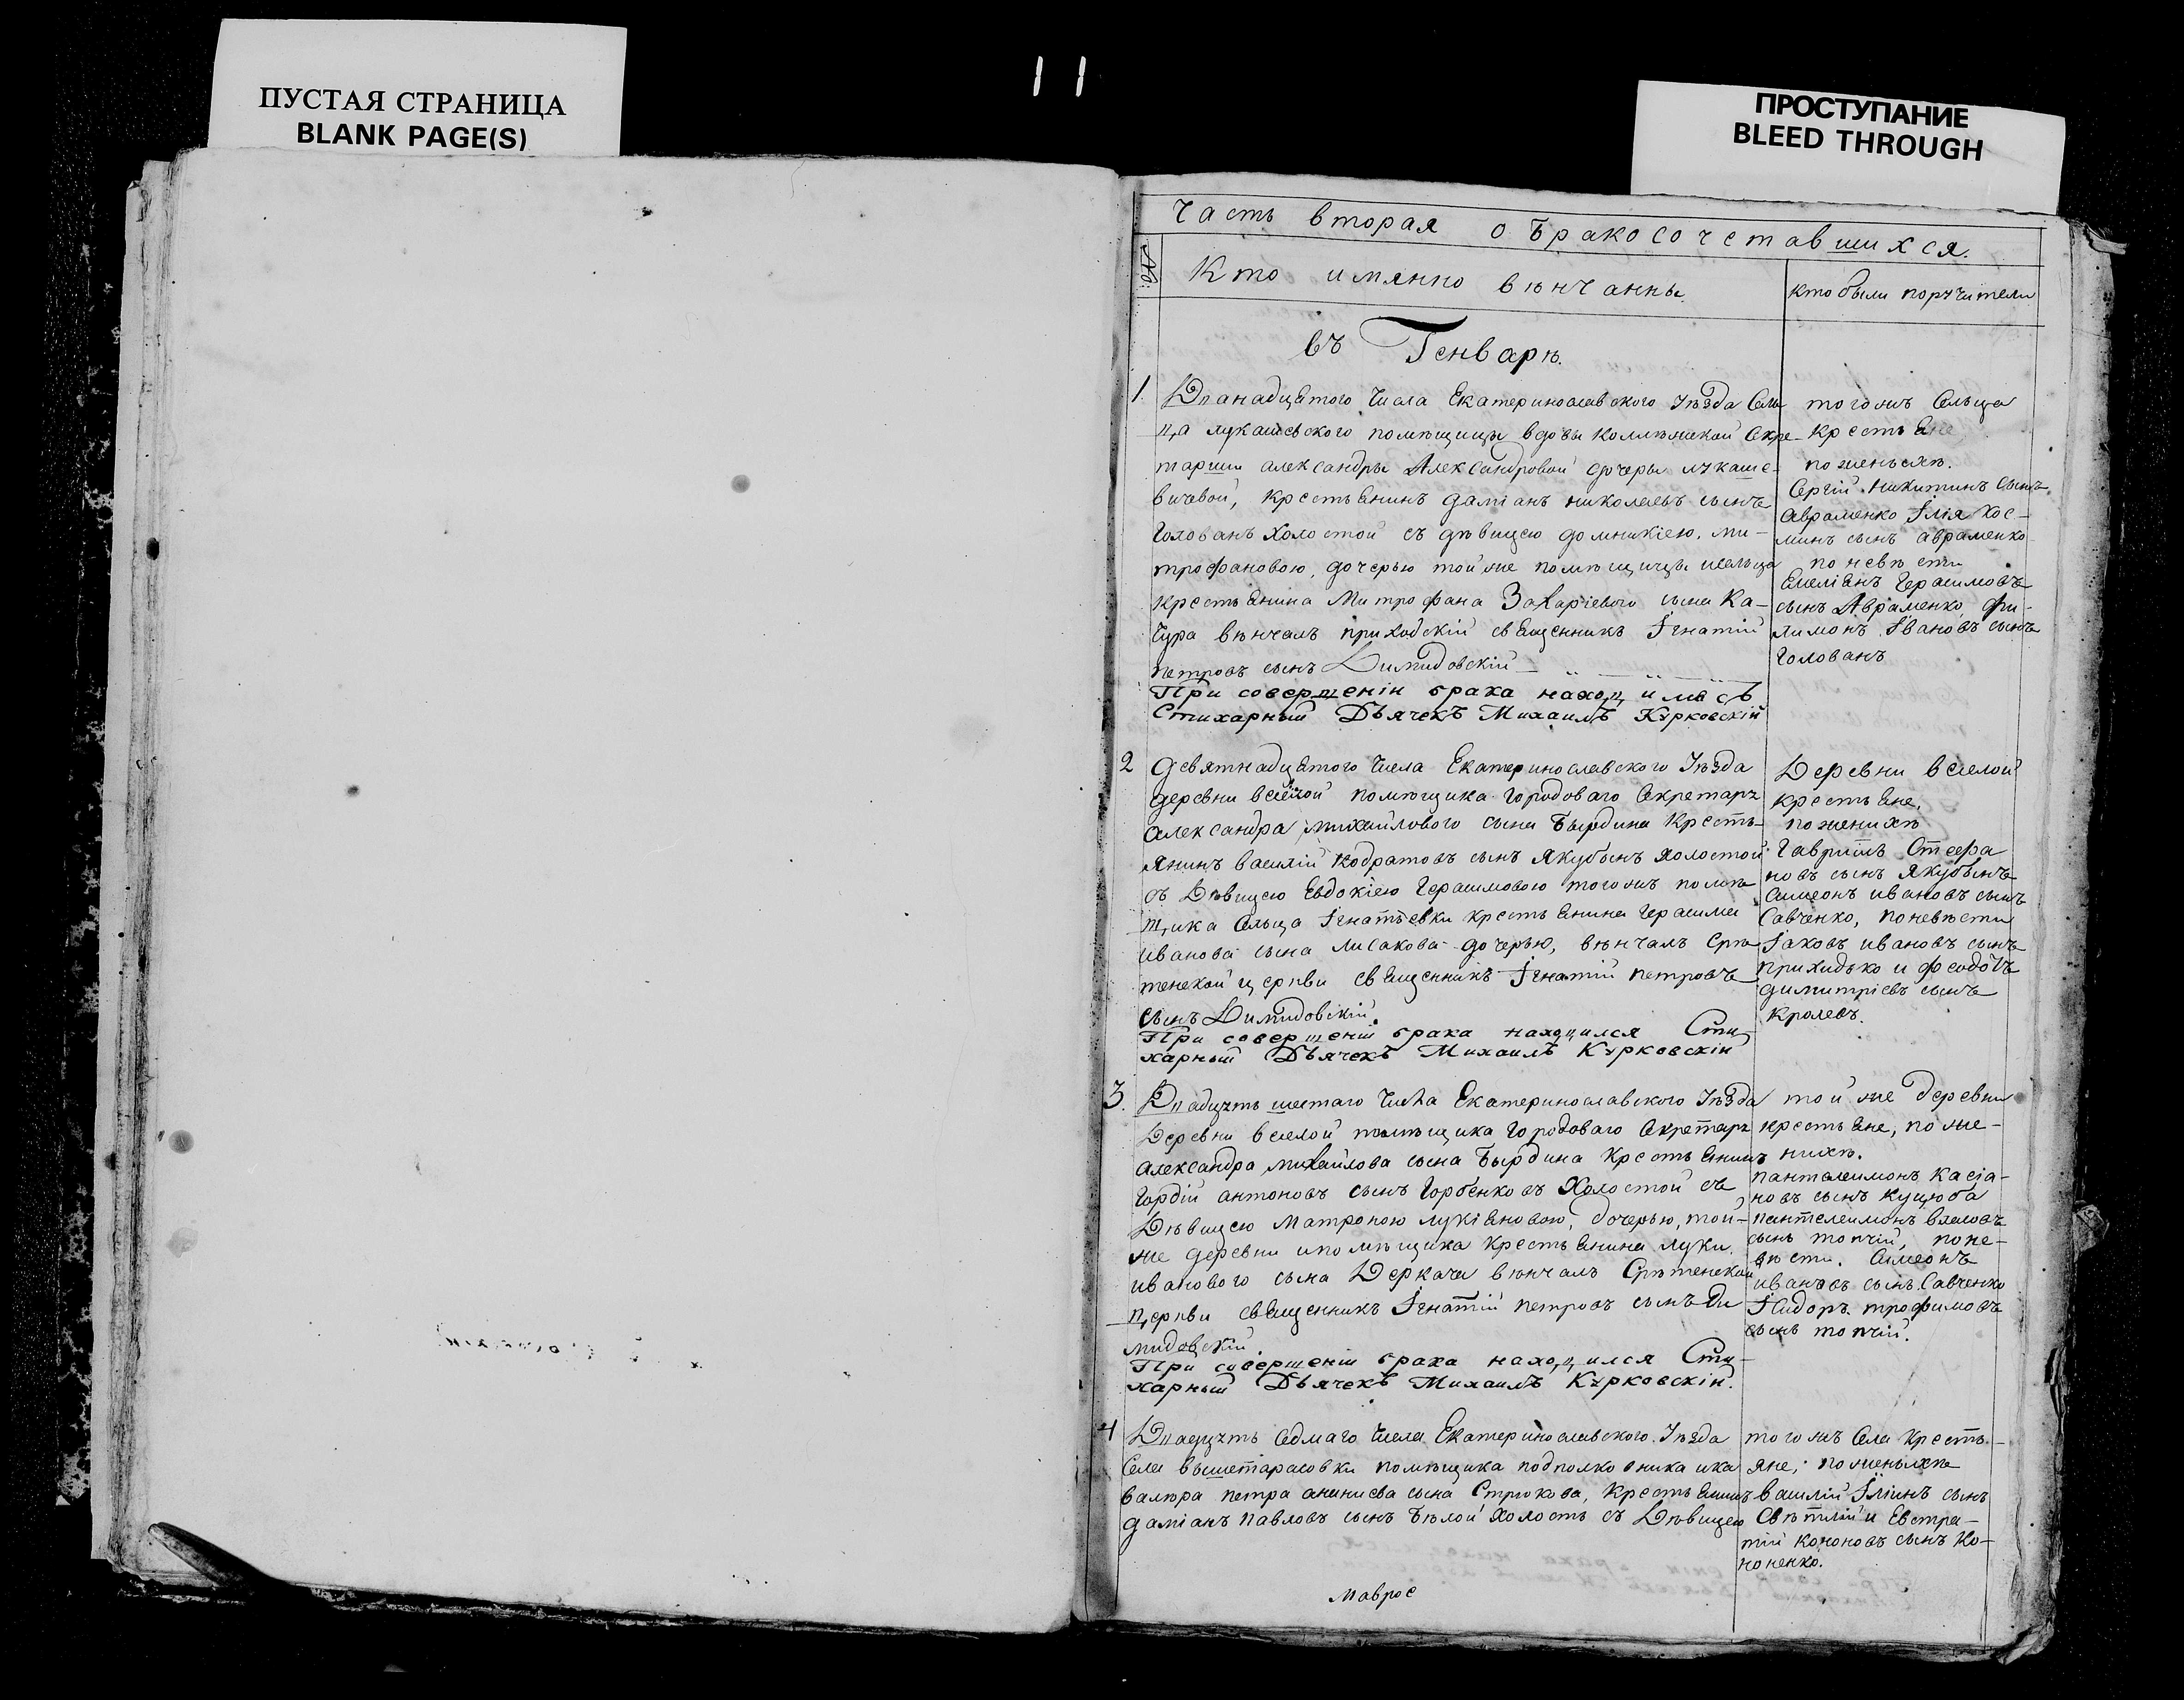 ПУСТАЯ СТРАНИЦА
BLANK PAGE(S)
11
ПРОСТУПАНИЕ
BLEED THROUGH
Часть вторая о бракосочетавшихся.
№
Кто имянно вѣнчанны
кто были поручители
въ Генварѣ.
1. Дванадцѧтого числа Екатеринославского Уѣзда Сель
ца лукашевского помѣщицы вдовы коллѣжской Секре-
тарши александры Александровой дочеры лукаше-
вичевой, крестьѧнинъ даміанъ николаевъ сынъ
Голованъ холостой съ дѣвицею домникіею. ми-
трофановою, дочерью тойже помѣщицы исельца
крестьѧнина Митрофана Захаріевого сына Ка-
чура вѣнчалъ приходскій свѧщенникъ Ігнатій
петровъ сынъ Димидовскій
При совершеніи брака находились
Стихарный Дьячекъ Михаилъ Курковскій
тогожъ Сельца
крестьѧне
поженихѣ.
Сергій никитинъ сынъ
Авраменко Ілія кос-
минъ сынъ авраменко
поневѣсти
Емеліѧнъ Герасимовъ
сынъ Авраменко, фи-
лимонъ Івановъ сынъ
Голованъ
2 Девятнадцѧтого числа Екатеринославского Уѣзда
деревни веселой помѣщика городоваго Секретарѧ
александра михайлового сына Бырдина Кресть-
янинъ василій кодратовъ сынъ Якубынъ холостой
съ Дѣвицею Евдокіею Герасимовою тогожъ помѣ
щика Сельца Ігнатьевки крестьѧнина Герасима
иванова сына лисакова дочерью, вѣнчалъ Срѣ
тенской церкви свѧщенникъ Ігнатій петровъ
сынъ Димидовскій.
При совершеніи брака находился Сти-
харный Дьячекъ Михаилъ Курковскій
Деревни веселой
крестьѧне,
поженихѣ
Гавріилъ Стефа
новъ сынъ Якубынъ
Симеонъ ивановъ сынъ
Савченко, поневѣсти
Іаковъ ивановъ сынъ
прихидько и феодотъ
димитріевъ сынъ
кролевъ.
3. Двадцѧть шестаго числа Екатеринославского Уѣзда
Деревни веселой помѣщика городоваго Секретарѧ
александра михайлова сына Бырдина крестьѧнинъ
Гордій антоновъ сынъ Горбенковъ Холостой съ
Дѣвицею Матроною лукіѧновою, дочерью, той-
же деревни ипомѣщика крестьѧнина луки
иванового сына Деркача вѣнчалъ Срѣтенской
церкви свѧщенникъ Ігнатій петровъ сынъ Ди
мидовскій
При совершеніи брака находился Сти-
харный Дьячекъ Михаилъ Курковскій.
той же деревни
крестьѧне, поже-
нихѣ.
пантелеимонъ касіа-
новъ сынъ куцюба
пантелеимонъ власовъ
сынъ топчій, поне-
вѣсти. Симеонъ
ивановъ сынъ Савченко
Ісидоръ трофимовъ
сынъ топчій.
4 Двадцѧть седмаго числа Екатеринославского Уѣзда
Села вышетарасовки помѣщика подполковника ика
валера петра ананиева сына Стрюкова, крестьѧнинъ
даміанъ павловъ сынъ Бѣлой холостъ съ Дѣвицею
тогожъ Села кресть-
яне; поженихѣ
василій Іліинъ сынъ
Свѣтлій и Евстра-
тій кононовъ сынъ Ко-
ноненко.
Маврое